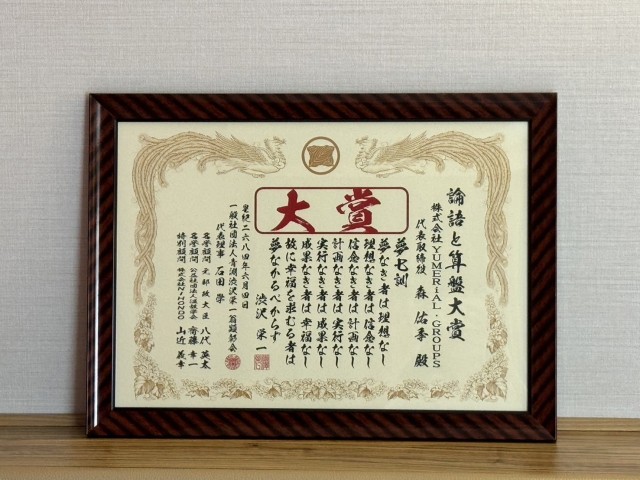 大賞
論語と算盤大賞
株式会社YUMERiAL・GROUPS
代表取締役 森 佑季 殿
夢七訓
夢なき者は理想なし
理想なき者は信念なし
信念なき者は計画なし
計画なき者は実行なし
実行なき者は成果なし
成果なき者は幸福なし
故に幸福を求むる者は
夢なかるべからず
渋沢 栄一
皇紀二六八四年六月四日
一般社団法人青淵渋沢栄一翁顕彰会
代表理事 石田 学
名誉顧問 元郵政大臣 八代 英太
名誉顧問 齋藤 幸一
特別顧問 株式会社NiNONDO 山近 義幸